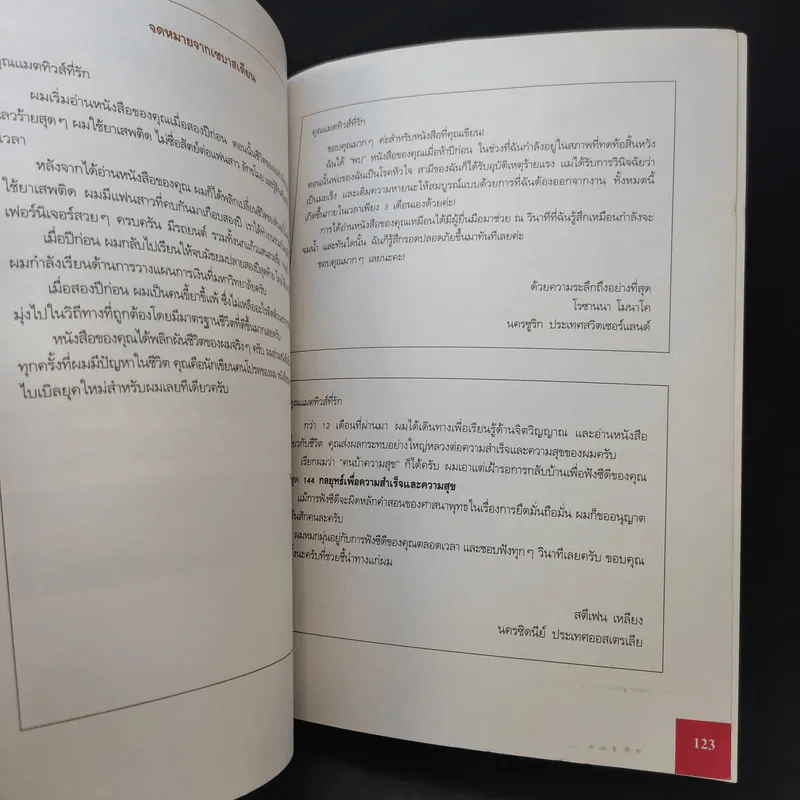 จดหมายจากเซบาสเตียน
คุณแมตทิวส์ที่รัก
ผมเริ่มอ่านหนังสือของคุณเมื่อสองปีก่อน ตอนนั้นชีวิตของผม
เลวร้ายสุดๆ ผมใช้ยาเสพติด ไม่ซื่อสัตย์ต่อแฟนสาว ลักขโมย และ
เวลา
หลังจากได้อ่านหนังสือของคุณ ผมก็ได้พลิกเปลี่ยนชีวิต
ใช้ยาเสพติด ผมมีแฟนสาวที่คบกันมาเกือบสองปี เรา
เฟอร์นิเจอร์สวยๆ ครบครัน มีรถยนต์ รวมทั้งนกแก้ว
เมื่อปีก่อน ผมกลับไปเรียนให้จบมัธยมปลายสองปีสุดท้าย
ผมกำลังเรียนด้านการวางแผนการเงินที่มหาวิทยาลัยครับ
เมื่อสองปีก่อน ผมเป็นคนขี้ยาขี้แพ้ ซึ่งไม่เหลืออะไร
มุ่งไปในวิถีทางที่ถูกต้องโดยมีมาตรฐานชีวิตที่ดีขึ้นมากเลยครับ
หนังสือของคุณได้พลิกผันชีวิตของผมจริงๆ ครับ ผมอ่าน
ทุกครั้งที่ผมมีปัญหาในชีวิต คุณคือนักเขียนคนโปรดของผม
ไบเบิลยุคใหม่สำหรับผมเลยทีเดียวครับ
คุณแมตทิวส์ที่รัก
ขอบคุณมากๆ ค่ะสำหรับหนังสือที่คุณเขียน!
ฉันได้ "พบ" หนังสือของคุณเมื่อห้าปีก่อน ในช่วงที่ฉันกำลังอยู่ในสภาพที่ทดท้อสิ้นหวัง
ตอนนั้นพ่อของฉันเป็นโรคหัวใจ สามีของฉันก็ได้รับอุบัติเหตุร้ายแรง แม่ได้รับการวินิจฉัยว่า
เป็นมะเร็ง และเติมความหายนะให้สมบูรณ์แบบด้วยการที่ฉันต้องออกจากงาน ทั้งหมดนี้
เกิดขึ้นภายในเวลาเพียง 3 เดือนเองด้วยค่ะ!
การได้อ่านหนังสือของคุณเหมือนได้มีผู้ยื่นมือมาช่วย ณ วินาทีที่ฉันรู้สึกเหมือนกำลังจะ
จมน้ำ และทันใดนั้น ฉันก็รู้สึกรอดปลอดภัยขึ้นมาทันทีเลยค่ะ
ขอบคุณมากๆ เลยนะคะ!
ด้วยความระลึกถึงอย่างที่สุด
โรซานนา โมนาโค
นครซูริก ประเทศสวิตเซอร์แลนด์
คุณแมตทิวส์ที่รัก
กว่า 12 เดือนที่ผ่านมา ผมได้เดินทางเพื่อเรียนรู้ด้านจิตวิญญาณ และอ่านหนังสือ
เกี่ยวกับชีวิต คุณส่งผลกระทบอย่างใหญ่หลวงต่อความสำเร็จและความสุขของผมครับ
เรียกผมว่า "คนบ้าความสุข" ก็ได้ครับ ผมเอาแต่เฝ้ารอการกลับบ้านเพื่อฟังซีดีของคุณ
ชุด 144 กลยุทธ์เพื่อความสำเร็จและความสุข
แม้การฟังซีดีจะผิดหลักคำสอนของศาสนาพุทธในเรื่องการยึดมั่นถือมั่น ผมก็ขออนุญาต
สักคนละครับ
ผมหมกมุ่นอยู่กับการฟังซีดีของคุณตลอดเวลา และชอบฟังทุกๆ วินาทีเลยครับ ขอบคุณ
นะครับที่ช่วยชี้นำทางแก่ผม
สตีเฟน เหลียง
นครซิดนีย์ ประเทศออสเตรเลีย
123